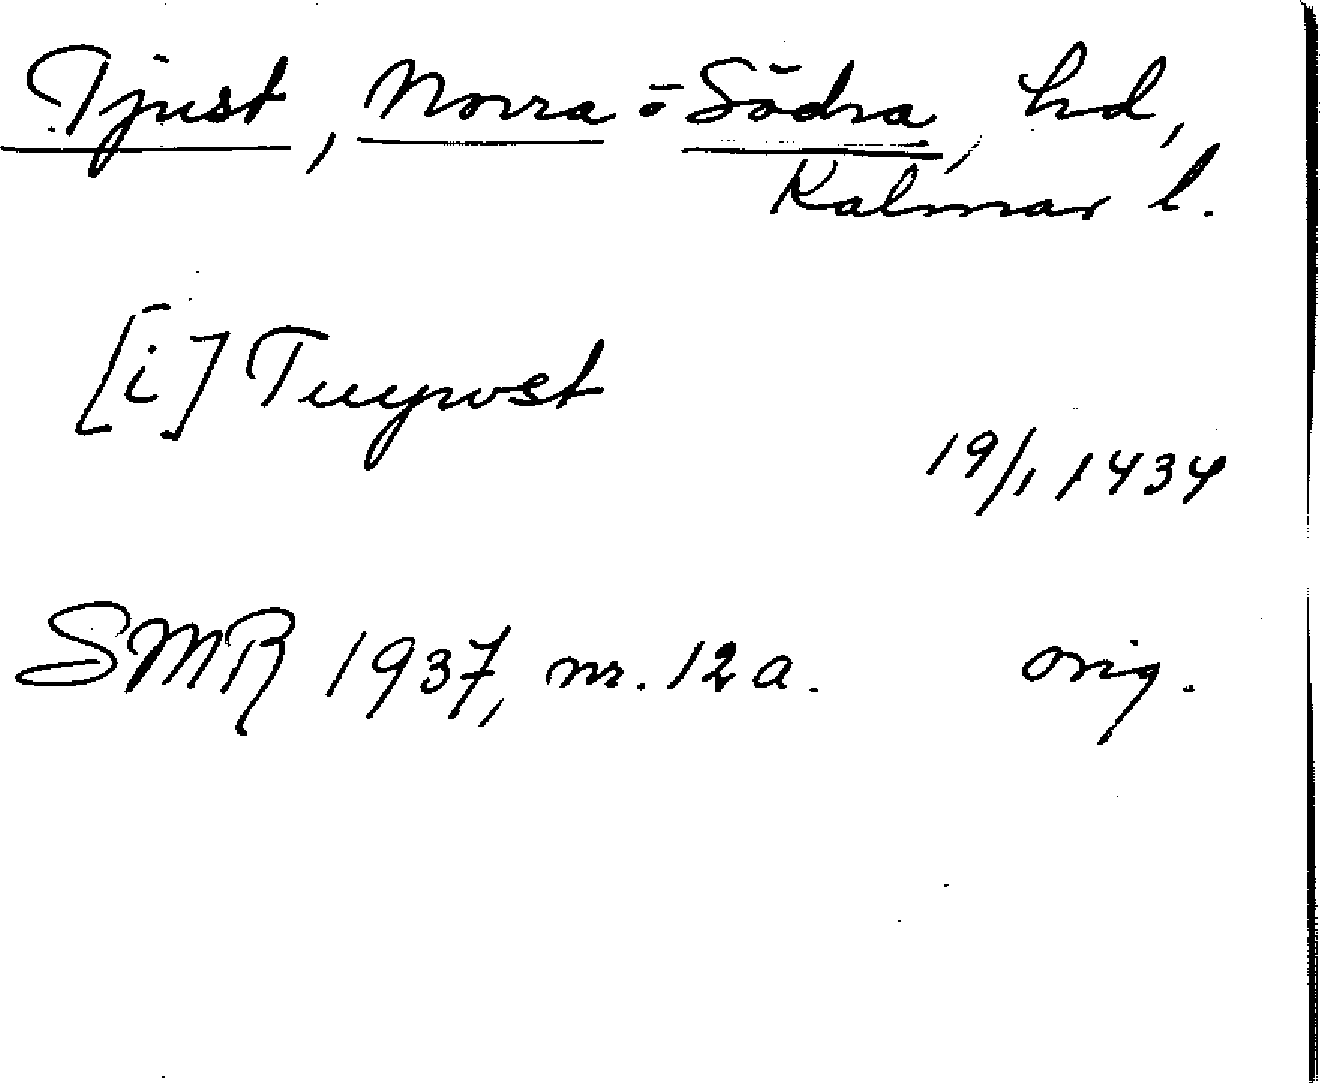 Tjust, Norra o Södra, hd,
Kalmar l.
[i] Tuywst
19/1 1434
SMR 1937, nr. 12a. orig.